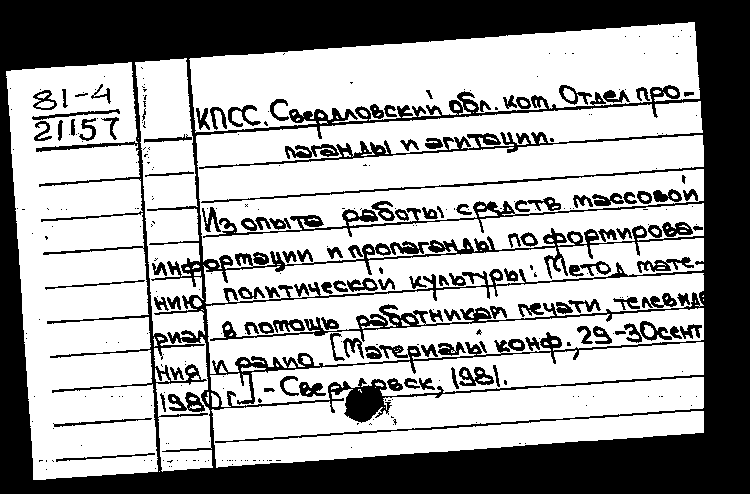 81-4
21157
КПСС. Свердловский обл. ком. Отдел про-
паганды и агитации.
Из опыта работы средств массовой
информации и пропаганды по формирова-
нию политической культуры: Метод. мате-
риал в помощь работникам печати, телевиде
ния и радио. [Материалы конф., 29-30 сент
1980 г.]. - Свердловск, 1981.